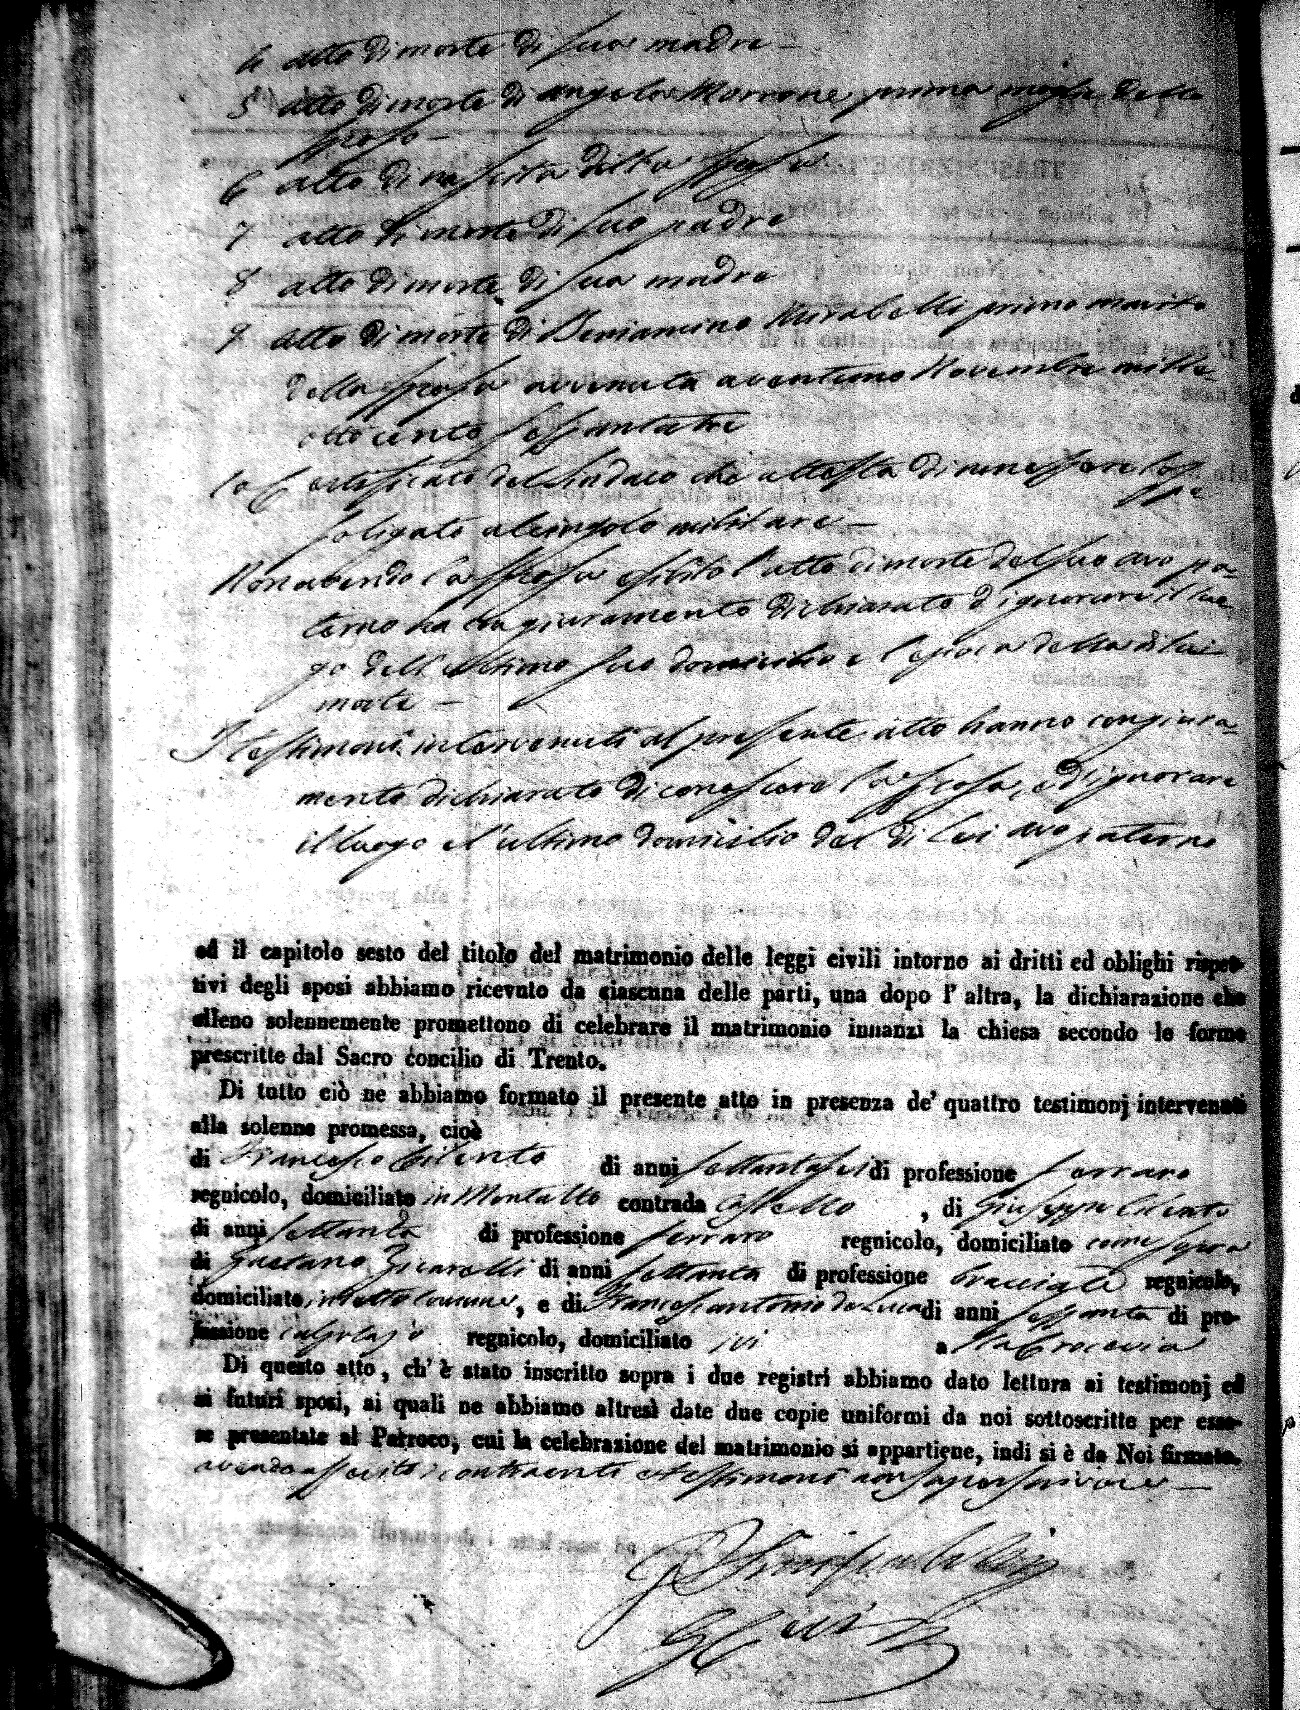 4 atto di morte di sua madre –
5 atto di morte di Angela Marrone prima moglie dello
sposo –
6 atto di nascita della sposa
7 atto di morte di suo padre
8 atto di morte di sua madre
9 atto di morte di Beniamino Mirabelli primo marito
della sposa avvenuta a ventuno Novembre mille
ottocento sessantatre
10 Certificato del Sindaco che attesta di non essere lo spo
so ligato al cingolo militare –
Non avendo la sposa esibito l'atto di morte del suo avo pa-
terno ha con giuramento dichiarato d'ignorare il luo
go dell'ultimo suo domicilio e l'epoca della di lui
morte –
I testimoni intervenuti al presente atto hanno con giura-
mento dichiarato di conoscere la sposa, e d'ignorare
il luogo e l'ultimo domicilio del di lei avo paterno
ed il capitolo sesto del titolo del matrimonio delle leggi civili intorno ai dritti ed oblighi rispet-
tivi degli sposi abbiamo ricevuto da ciascuna delle parti, una dopo l' altra, la dichiarazione che
elleno solennemente promettono di celebrare il matrimonio innanzi la chiesa secondo le forme
prescritte dal Sacro concilio di Trento.
Di tutto ciò ne abbiamo formato il presente atto in presenza de' quattro testimonj intervenuti
alla solenne promessa, cioè
di Francesco Cilento di anni settantasei di professione ferraro
regnicolo, domiciliato in Montalto contrada Castello , di Giuseppe Cilento
di anni settanta di professione ferraro regnicolo, domiciliato come sopra
di Gaetano Zicarelli di anni settanta di professione bracciale regnicolo,
domiciliato in detto Comune, e di Francescantonio de Luca di anni sessanta di pro-
fessione calzolajo regnicolo, domiciliato ivi a la Crocevia
Di questo atto, ch' è stato inscritto sopra i due registri abbiamo dato lettura ai testimonj ed
ai futuri sposi, ai quali ne abbiamo altresì date due copie uniformi da noi sottoscritte per esse-
re presentate al Parroco, cui la celebrazione del matrimonio si appartiene, indi si è da Noi firmato.
avendo asserito i contraenti e testimoni non saper scrivere –